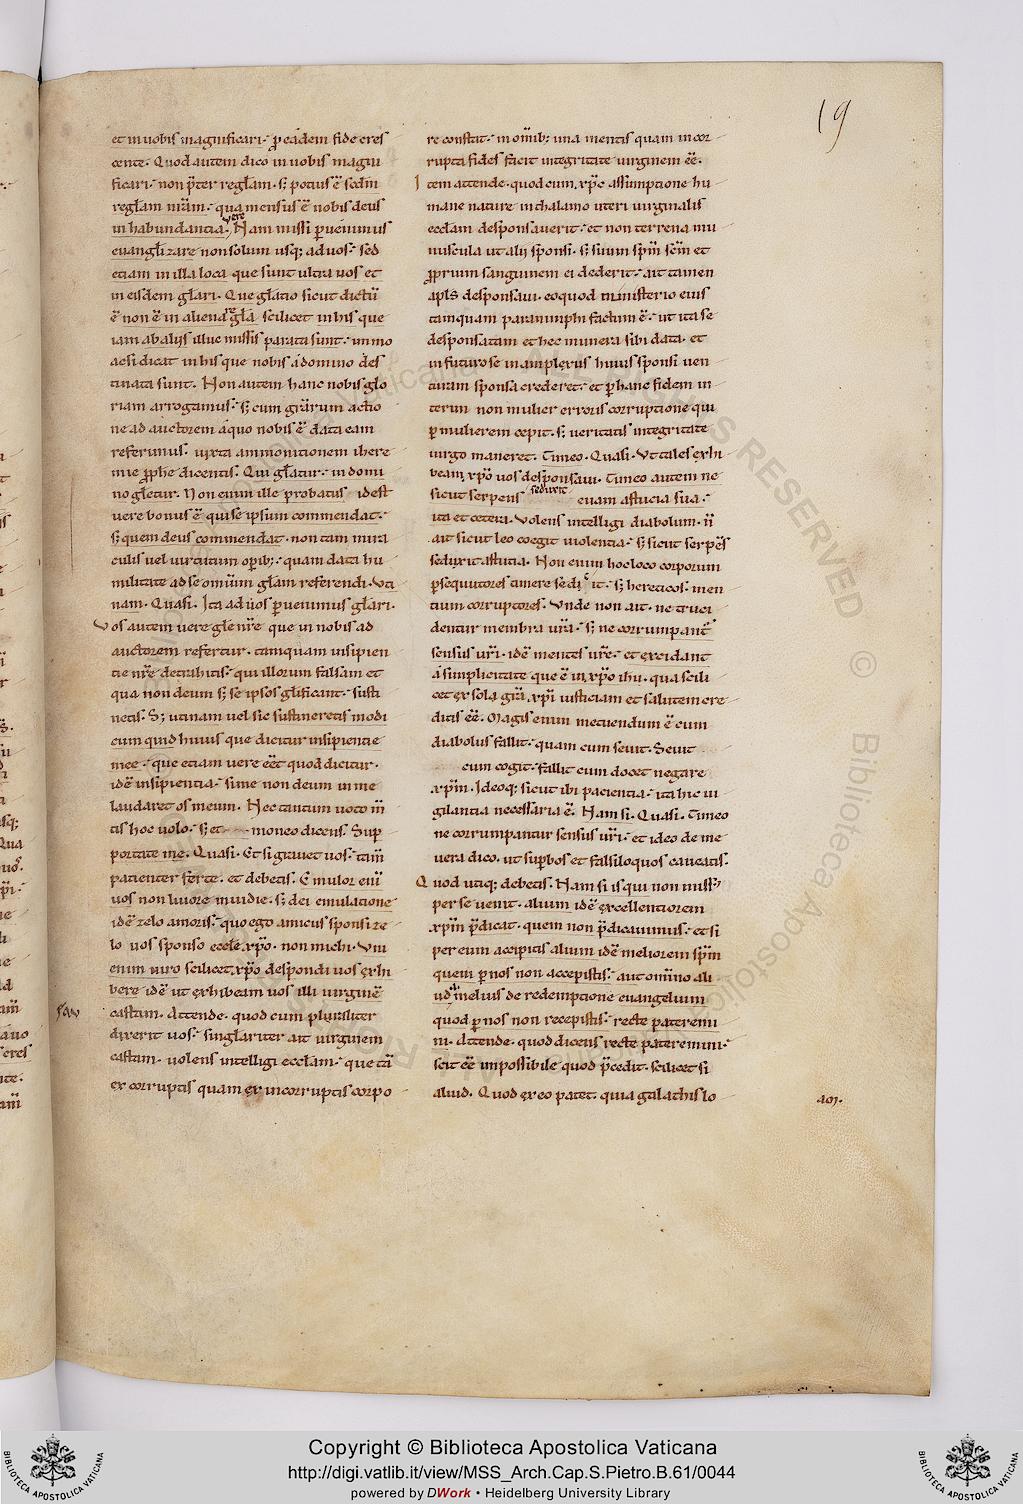 19
et in uobis magnificari· ꝑ eadem fide cres
cente· Quod autem dico in uobis magni
ficari· non p̄ter regłam· s; potius ē scdm
regłam nr̄am· qua mensus ē nobis deus
in habundantia· vere Nam missi ꝑuenimus
euangłizare non solum usq; ad uos· sed
etiam in illa loca que sunt ultra uos et
in eisdem głari· Que głatio sicut dictū
ē non ē in aliena regła scilicet in his que
iam ab alijs illuc missis parata sunt· immo
acsi dicat in his que nobis a domino des
tinata sunt· Non autem hanc nobis glo
riam arrogamus· s; cum grārum actio
ne ad auctorem a quo nobis ē data eam
referimus· iuxta ammonitionem ihere
mie ꝓphe dicentis· Qui głatur· in domi
no głetur· Non enim ille probatus idest
uere bonus ē qui se ipsum commendat·
s; quem deus commendat· non tam mira
culis uel uirtutum opib;· quam data hu
militate ad se omium głam referendi· Uti
nam· Quasi· Ita ad uos ꝑuenimus głari·
Vos autem uere głe nr̄e que in nobis ad
auctorem refertur· tamquam insipien
tie nr̄e detrahitis· qui illorum falsam et
qua non deum s; se ipsos głificant· susti
netis· S; utinam uel sic sustineretis modi
cum quid huius que dicitur insipientie
mee· que etiam uere eēt quod dicitur·
idē insipientia· si me non deum in me
laudaret os meum· Nec tantum uoto m̄
tis hoc uolo· s; et moneo dicens· Sup
portate me· Quasi· Et si grauet uos· tam̄
patienter ferte· et debetis· Emulor eni
uos non liuore inuidie· s; dei emulatione
idē zelo amoris· quo ego amicus sponsi ze
lo uos sponso eccłe xp̄o· non michi· Uni
enim uiro scilicet xp̄o despondi uos exhi
bere idē ut exhibeam uos illi uirginē
castam· Attende· quod cum pluraliter
dixerit uos· singlariter ait uirginem
castam· uolens intelligi eccłam· que tā
ex corruptis quam ex incorruptis corpo
re constat· in omīb; una mentis quam incor
rupta fides facit integritate uirginem eē·
Item attende· quod cum xp̄c assumptione hu
mane nature in thalamo uteri uirginalis
eccłam desponsauerit· et non terrena mu
nuscula ut alij sponsi· s; suum spm̄ scm̄ et
ꝓprium sanguinem ei dederit· ait tamen
apłs desponsaui· eo quod ministerio eius
tamquam paranimphi factum ē· ut ita se
desponsatam et hec munera sibi data· et
in futuro se in amplexus huius sponsi uen
turam sponsa crederet· et ꝑ hanc fidem in
terim non mulier erroris corruptione qui
ꝑ mulierem cepit· s; ueritatis integritate
uirgo maneret· Timeo· Quasi· Ut tales exhi
beam xp̄o uos desponsaui· Timeo autem ne
sicut serpens seduxit euam astucia sua·
ita et cetera· Volens intelligi diabolum· n̄
ait sicut leo coegit uiolentia· s; sicut serpēs
seduxit astutia· Non enim hoc loco corporum
ꝑsequutores timere se dicit· s; hereticos· men
tium corruptores· Unde non ait· ne truci
dentur membra ur̄a· s; ne corrumpant̄
sensus ur̄i· idē mentes ur̄e· et excidant
a simplicitate que ē in xp̄o ihu· qua scili
cet ex sola gr̄a xp̄i iusticiam et salutem cre
ditis eē· Magis enim metuendum ē cum
diabolus fallit· quam cum seuit· Seuit
cum cogit· fallit cum docet negare
xp̄m· Ideoq; sicut ibi pacientia· ita hic ui
gilantia necessaria ē· Nam si· Quasi· Timeo
ne corrumpantur sensus ur̄i· et ideo de me
uera dico· ut supbos et falsiloquos caueatis·
Quod utiq; debetis· Nam si is qui non missꝰ
per se uenit· alium idē excellentiorem
xp̄m p̄dicat· quem non p̄dicauimus· et si
per eum accipitis alium idē meliorem spm̄
quem ꝑ nos non accepistis· aut omīno ali
ud melius de redemptione euangelium
quod ꝑ nos non recepistis· recte pateremi
ni· Attende· quod dicens recte pateremini·
scit eē impossibile quod p̄cedit· scilicet si
aliud· Quod ex eo patet· quia galathis lo
Copyright © Biblioteca Apostolica Vaticana
http://digi.vatlib.it/view/MSS_Arch.Cap.S.Pietro.B.61/0044
powered by DWork • Heidelberg University Library
BIBLIOTECA APOSTOLICA VATICANA
BIBLIOTECA APOSTOLICA VATICANA